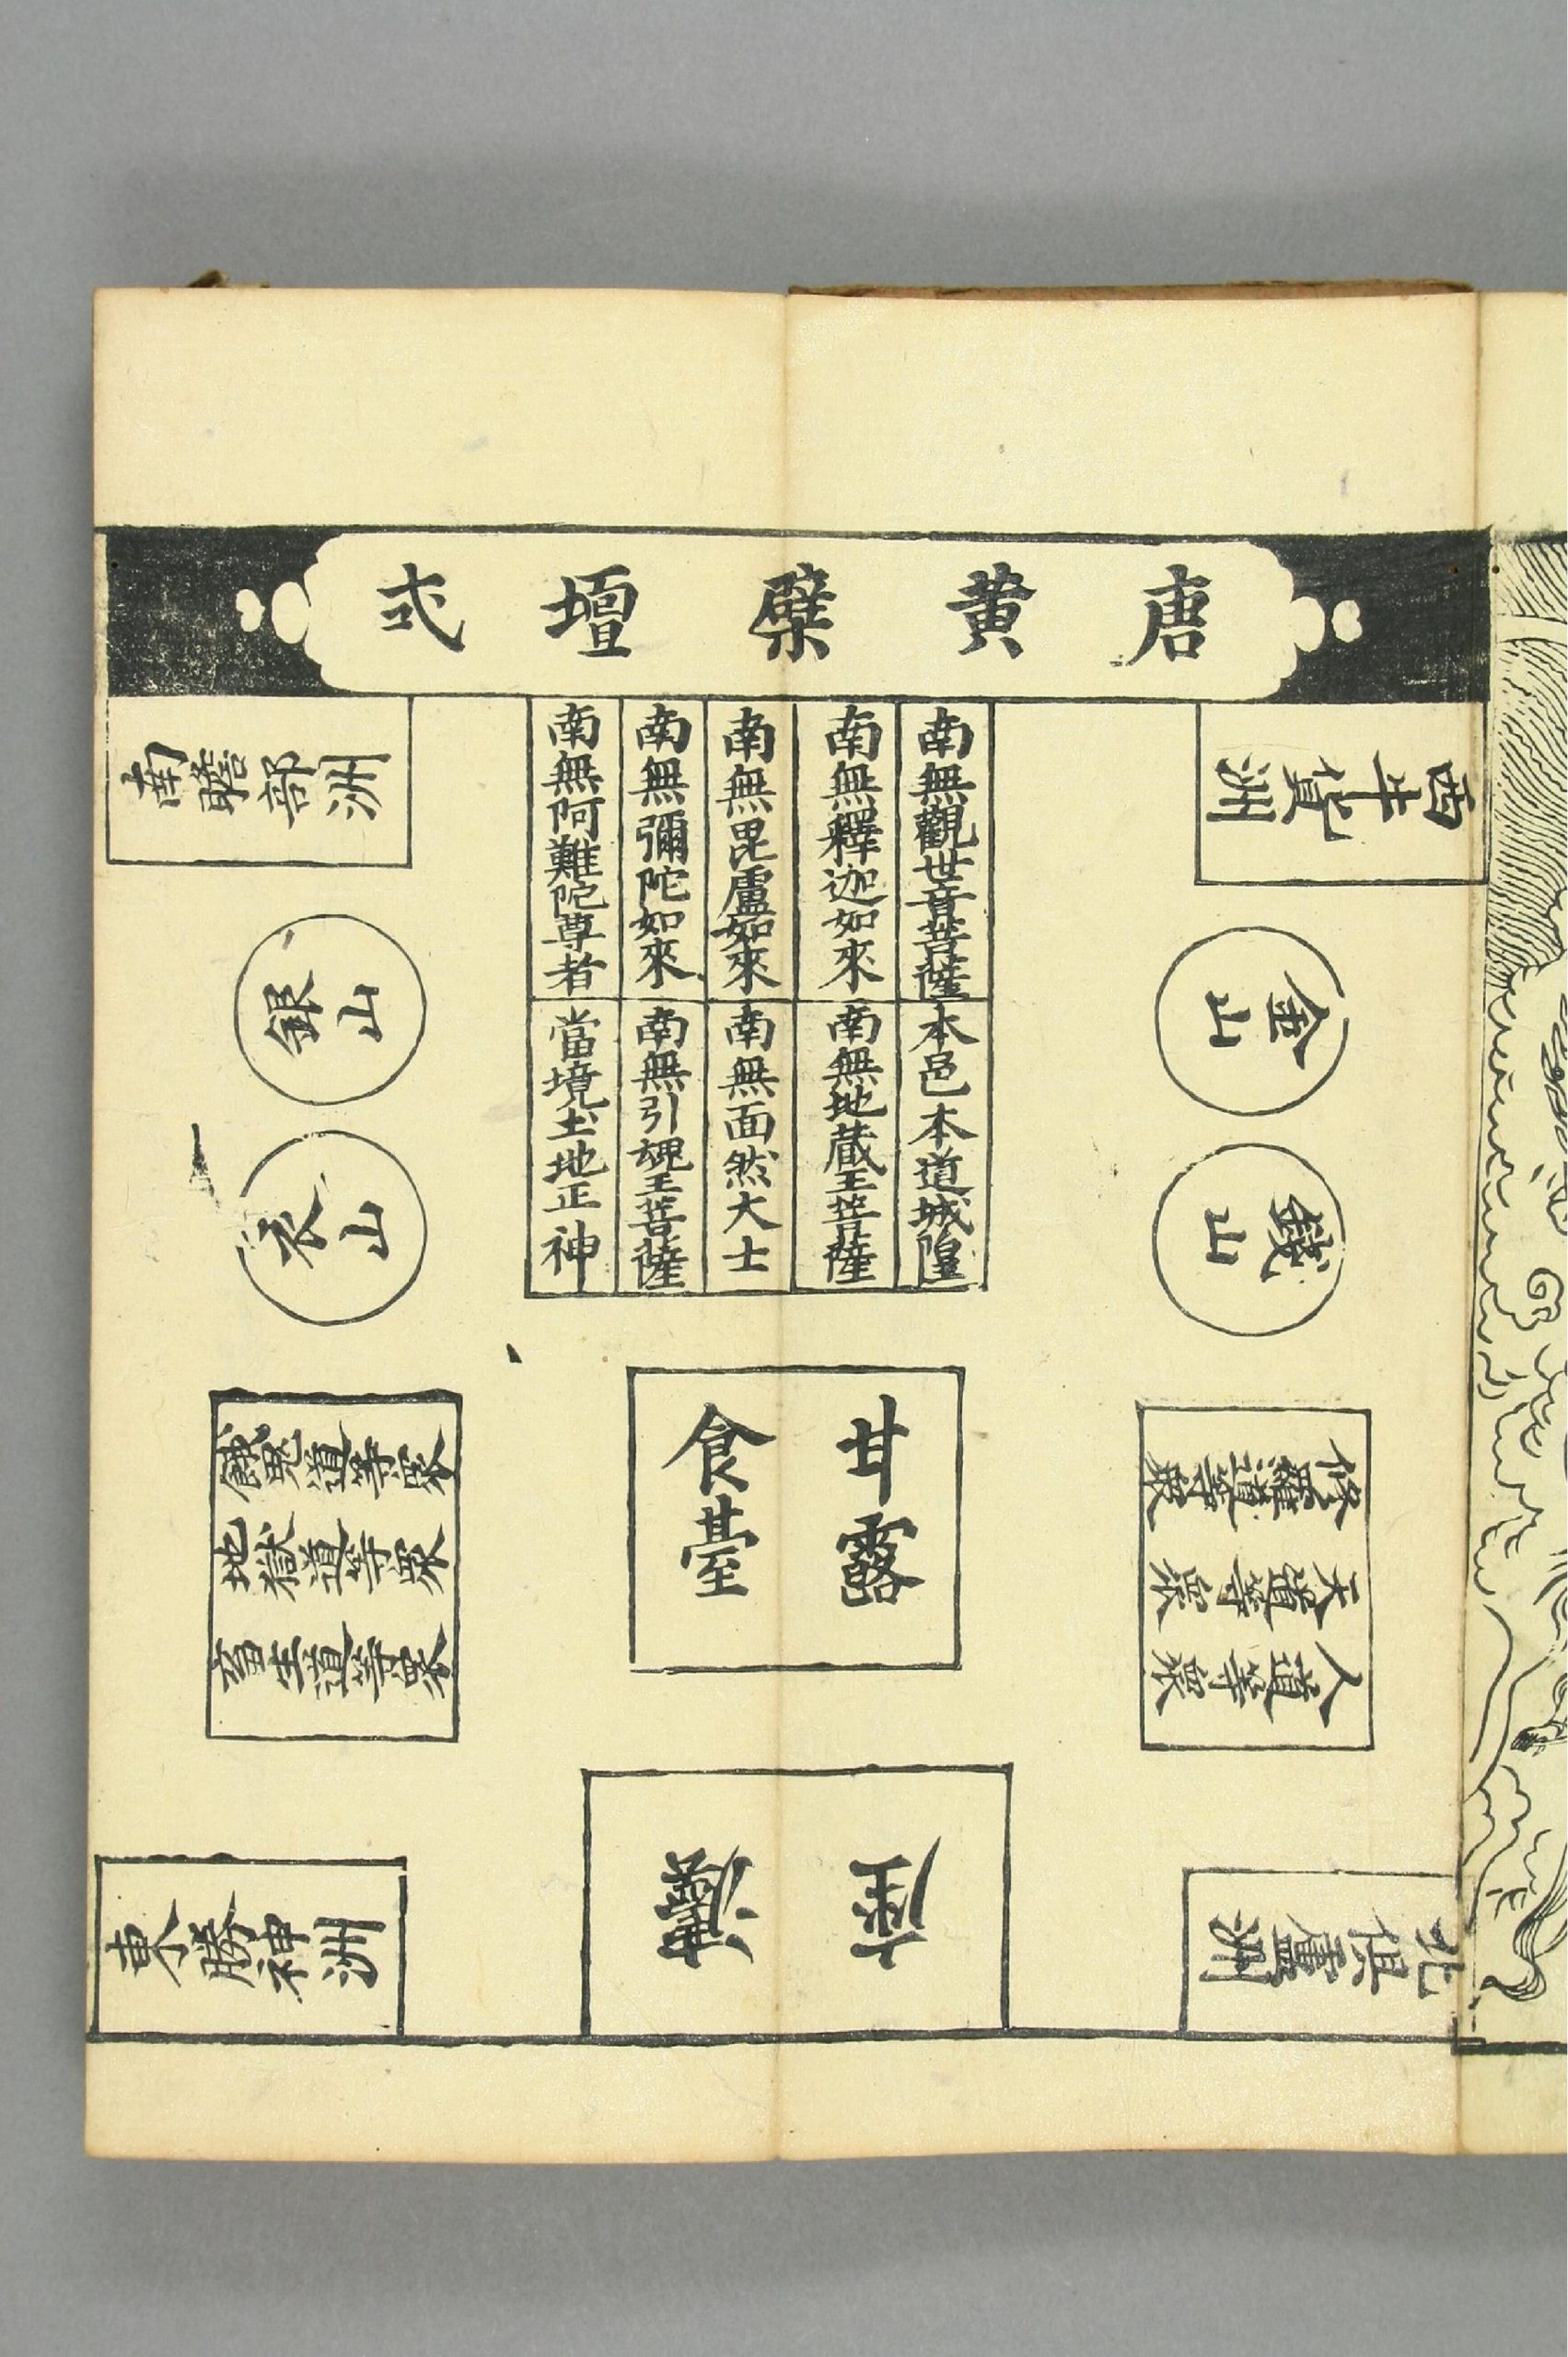 唐黄檗壇式
西牛貨洲
金山
鐵山
修羅道等眾
天道等眾
人道等眾
北俱盧洲
南無觀世音菩薩
南無釋迦如來
南無毘盧如來
南無彌陀如來
南無阿難陀尊者
本邑本道城隍
南無地藏王菩薩
南無面然大士
南無引魂王菩薩
當境土地正神
甘露
食臺
灋座
南贍部洲
銀山
衣山
餓鬼道等眾
地獄道等眾
畜生道等眾
東勝神洲